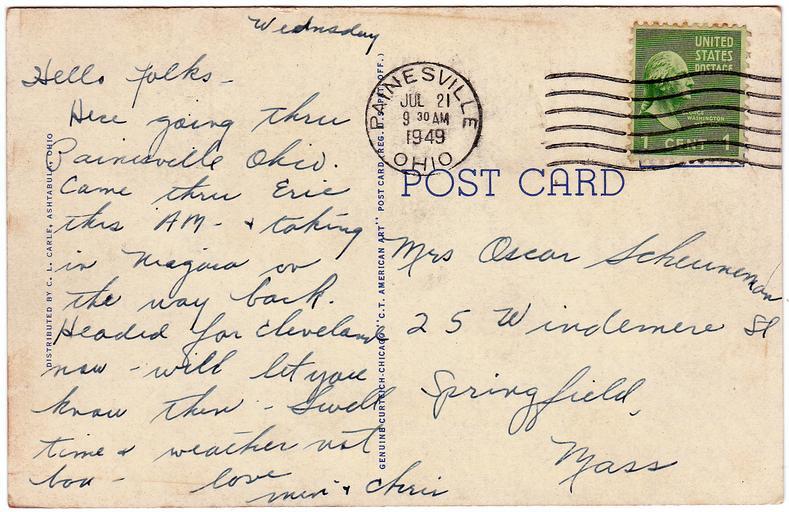 Wednesday
Hello folks -
Here going thru
Painesville Ohio.
Came thru Erie
this AM - & taking
in Niagara on
the way back.
Headed for Cleveland
now - will let you
know then - Swell
time & weather not
bad - love
& Chris
DISTRIBUTED BY C. L. CARLE, ASHTABULA, OHIO
GENUINE CURTEICH-CHICAGO "C.T. AMERICAN ART" POST CARD (REG. U.S. PAT. OFF.)
PAINESVILLE
JUL 21
9 30 AM
1949
OHIO
UNITED
STATES
POSTAGE
GEORGE
WASHINGTON
1 CENT 1
POST CARD
Mrs Oscar Scheuneman
25 Windemere St
Springfield,
Mass